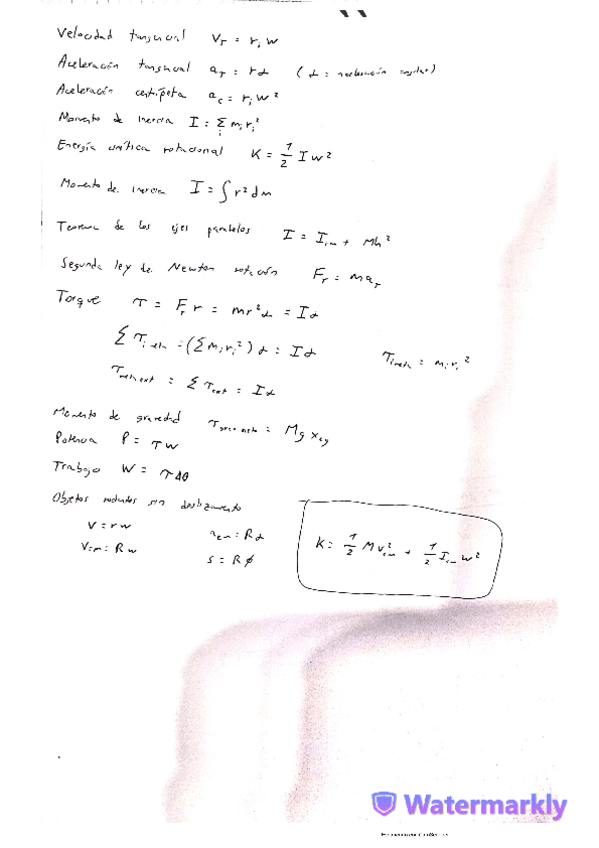 Velocidad tangencial V_T = r_i w
Aceleración tangencial a_T = r α (α = aceleración angular)
Aceleración centrípeta a_c = r_i w²
Momento de inercia I = Σ_i m_i r_i²
Energía cinética rotacional K = 1/2 I w²
Momento de inercia I = ∫ r² dm
Teorema de los ejes paralelos I = I_cm + Mh²
Segunda ley de Newton rotación F_T = m a_T
Torque τ = F_T r = m r² α = I α
Σ τ_i neto = (Σ m_i r_i²) α = I α τ_i neto = m_i r_i²
τ_net ext = Σ τ_ext = I α
Momento de gravedad = Mg x_cg
Potencia P = τ w
Trabajo W = τ Δθ
Objetos rodantes sin deslizamiento
V = r w a_cm = R α
V_cm = R w s = R ϕ
K = 1/2 M v_cm² + 1/2 I_cm w²
Watermarkly